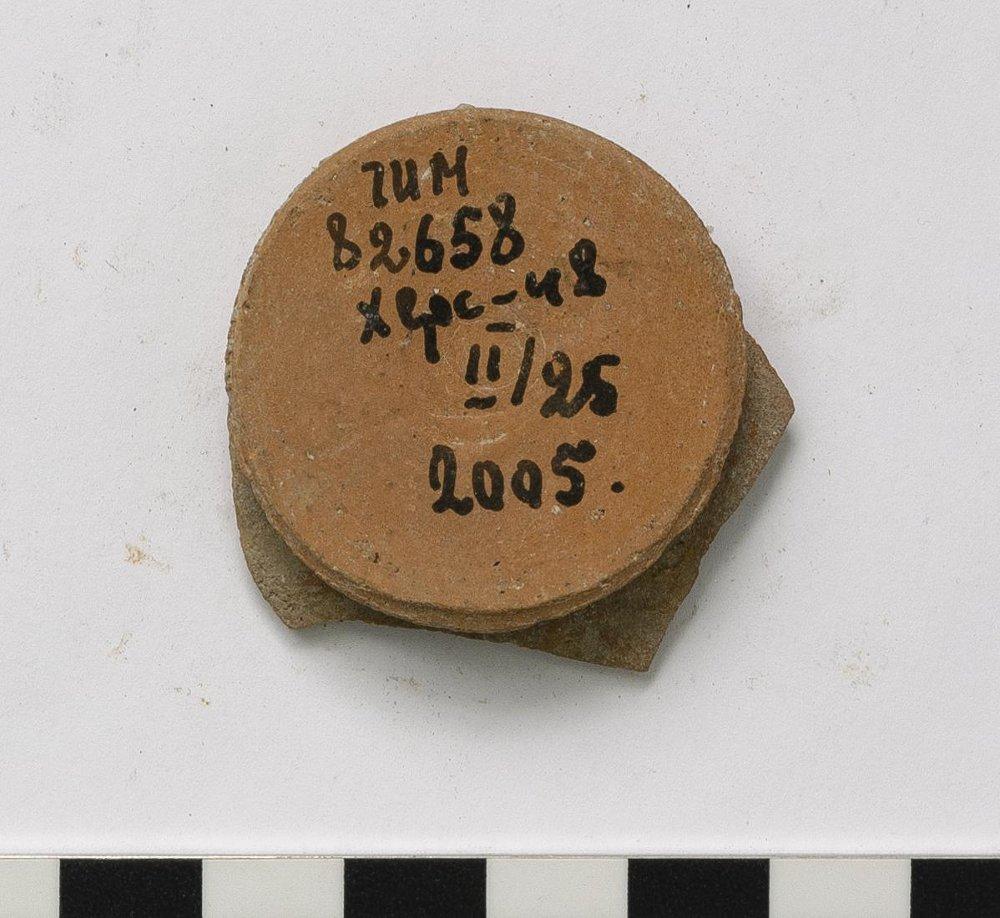 ГИМ
82658
Херс-ч8
II/25
2005.